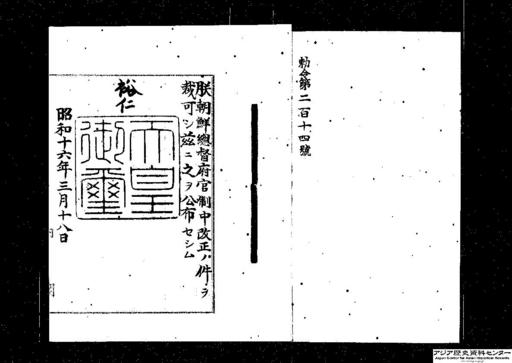 勅令第二百十四號
朕朝鮮總督府官制中改正ノ件ヲ
裁可シ茲ニ之ヲ公布セシム
裕仁
天皇
御璽
昭和十六年三月十八日
アジア歴史資料センター
Japan Center for Asian Historical Records